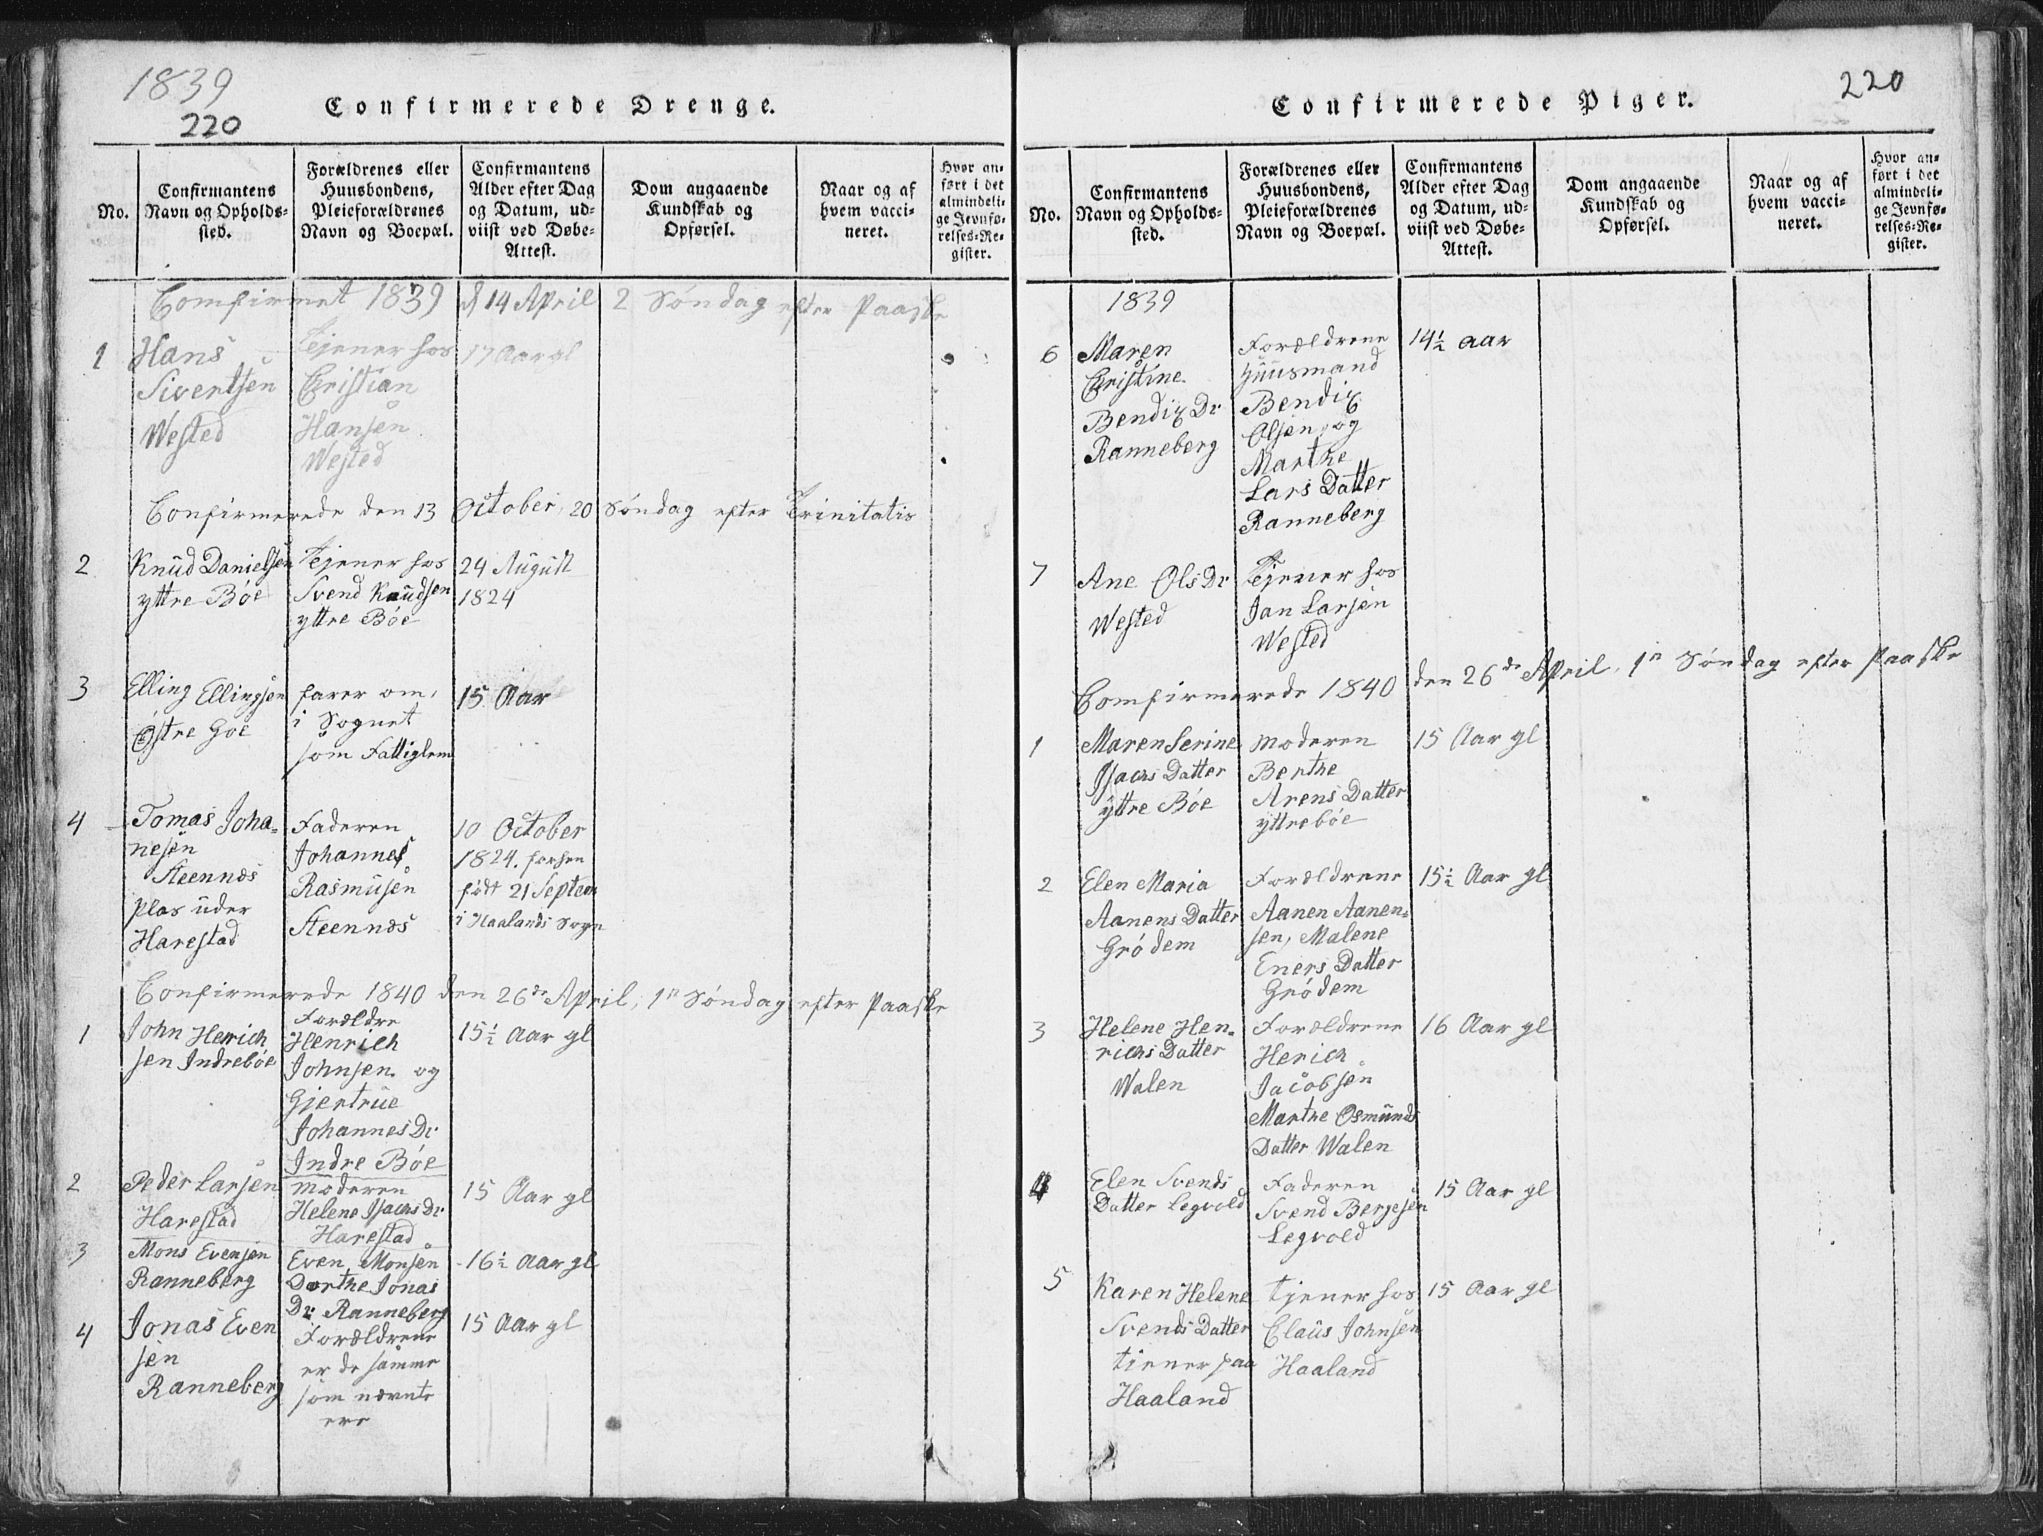 1839
220
Confirmerede Drenge.
No.
Confirmantens
Navn og Opholds-
sted.
Forældrenes eller
Huusbondens,
Pleieforældrenes
Navn og Boepæl.
Confirmantens
Alder efter Dag
og Datum, ud-
viist ved Døbe-
Attest.
Dom angaaende
Kundskab og
Opførsel.
Naar og af
hvem vacci-
neret.
Hvor an-
ført i det
almindeli-
ge Jevnfø-
relses-Re-
gister.
Comfirmet 1839 d 14 April 2 Søndag efter Paaske
1
Hans
Sivertsen
Wested
Tjener hos
Christian
Hansen
Wested
17 Aar gl
Confirmerede den 13 October, 20 Søndag efter Trinitatis
2
Knud Danielsen
yttre Bøe
Tjener hos
Svend Knudsen
yttre Bøe
24 August
1824
3
Elling Ellingsen
Østre Goe
farer om,
i Sognet
som Fattiglem
15 Aar
4
Tomas Joha-
nesen
Steennæs
plas under
Harestad
Faderen
Johannes
Rasmusen
Steennæs
10 October
1824. forsen
født 21 Septem
i Haalands Sogn
Confirmerede 1840 den 26de April, 1n Søndag efter Paaske
1
John Henrich
sen Indrebøe
Forældre
Henrich
Johnsen og
Gjertrue
Johannes Dr
Indre Bøe
15½ Aar gl
2
Peder Larsen
Harestad
moderen
Helene Isachs Dr
Harestad
15 Aar gl
3
Mons Evensen
Ranneberg
Even Monsen
Dorthe Jonas
Dr Ranneberg
16½ Aar gl
4
Jonas Even
sen
Ranneberg
Forældrene
er de samme
som nævnte
ere
15 Aar gl
220
Confirmerede Piger.
No.
Confirmantens
Navn og Opholds-
sted.
Forældrenes eller
Huusbondens,
Pleieforældrenes
Navn og Boepæl.
Confirmantens
Alder efter Dag
og Datum, ud-
viist ved Døbe-
Attest.
Dom angaaende
Kundskab og
Opførsel.
Naar og af
hvem vacci-
neret.
Hvor an-
ført i det
almindeli-
ge Jevnfø-
relses-Re-
gister.
1839
6
Maren
Christine
Bendix Dr
Ranneberg
Forældrene
Huusmand
Bendix
Olsen, og
Marthe
Lars Datter
Ranneberg
14½ aar
7
Ane Ols Dr
Wested
Tjener hos
Jan Larsen
Wested
Comfirmerede 1840 den 26de April, 1n Søndag efter Paaske
1
Maren Serine
Isachs Datter
yttre Bøe
moderen
Berthe
Arens Datter
yttrebøe
15 Aar gl
2
Elen Maria
Aanens Datter
Grødem
Forældrene
Aanen Aanen-
sen, Malene
Eners Datter
Grødem
15½ Aar gl
3
Helene Hen-
richs Datter
Walen
Forældrene
Herich
Jacobsen
Marthe Osmunds
Datter Walen
16 Aar gl
4
Elen Svends
Datter Legvold
Faderen
Svend Bergesen
Legvold
15 Aar gl
5
Karen Helene
Svends Datter
tiener paa
Haaland
tjener hos
Claus Johnsen
Haaland
15 Aar gl